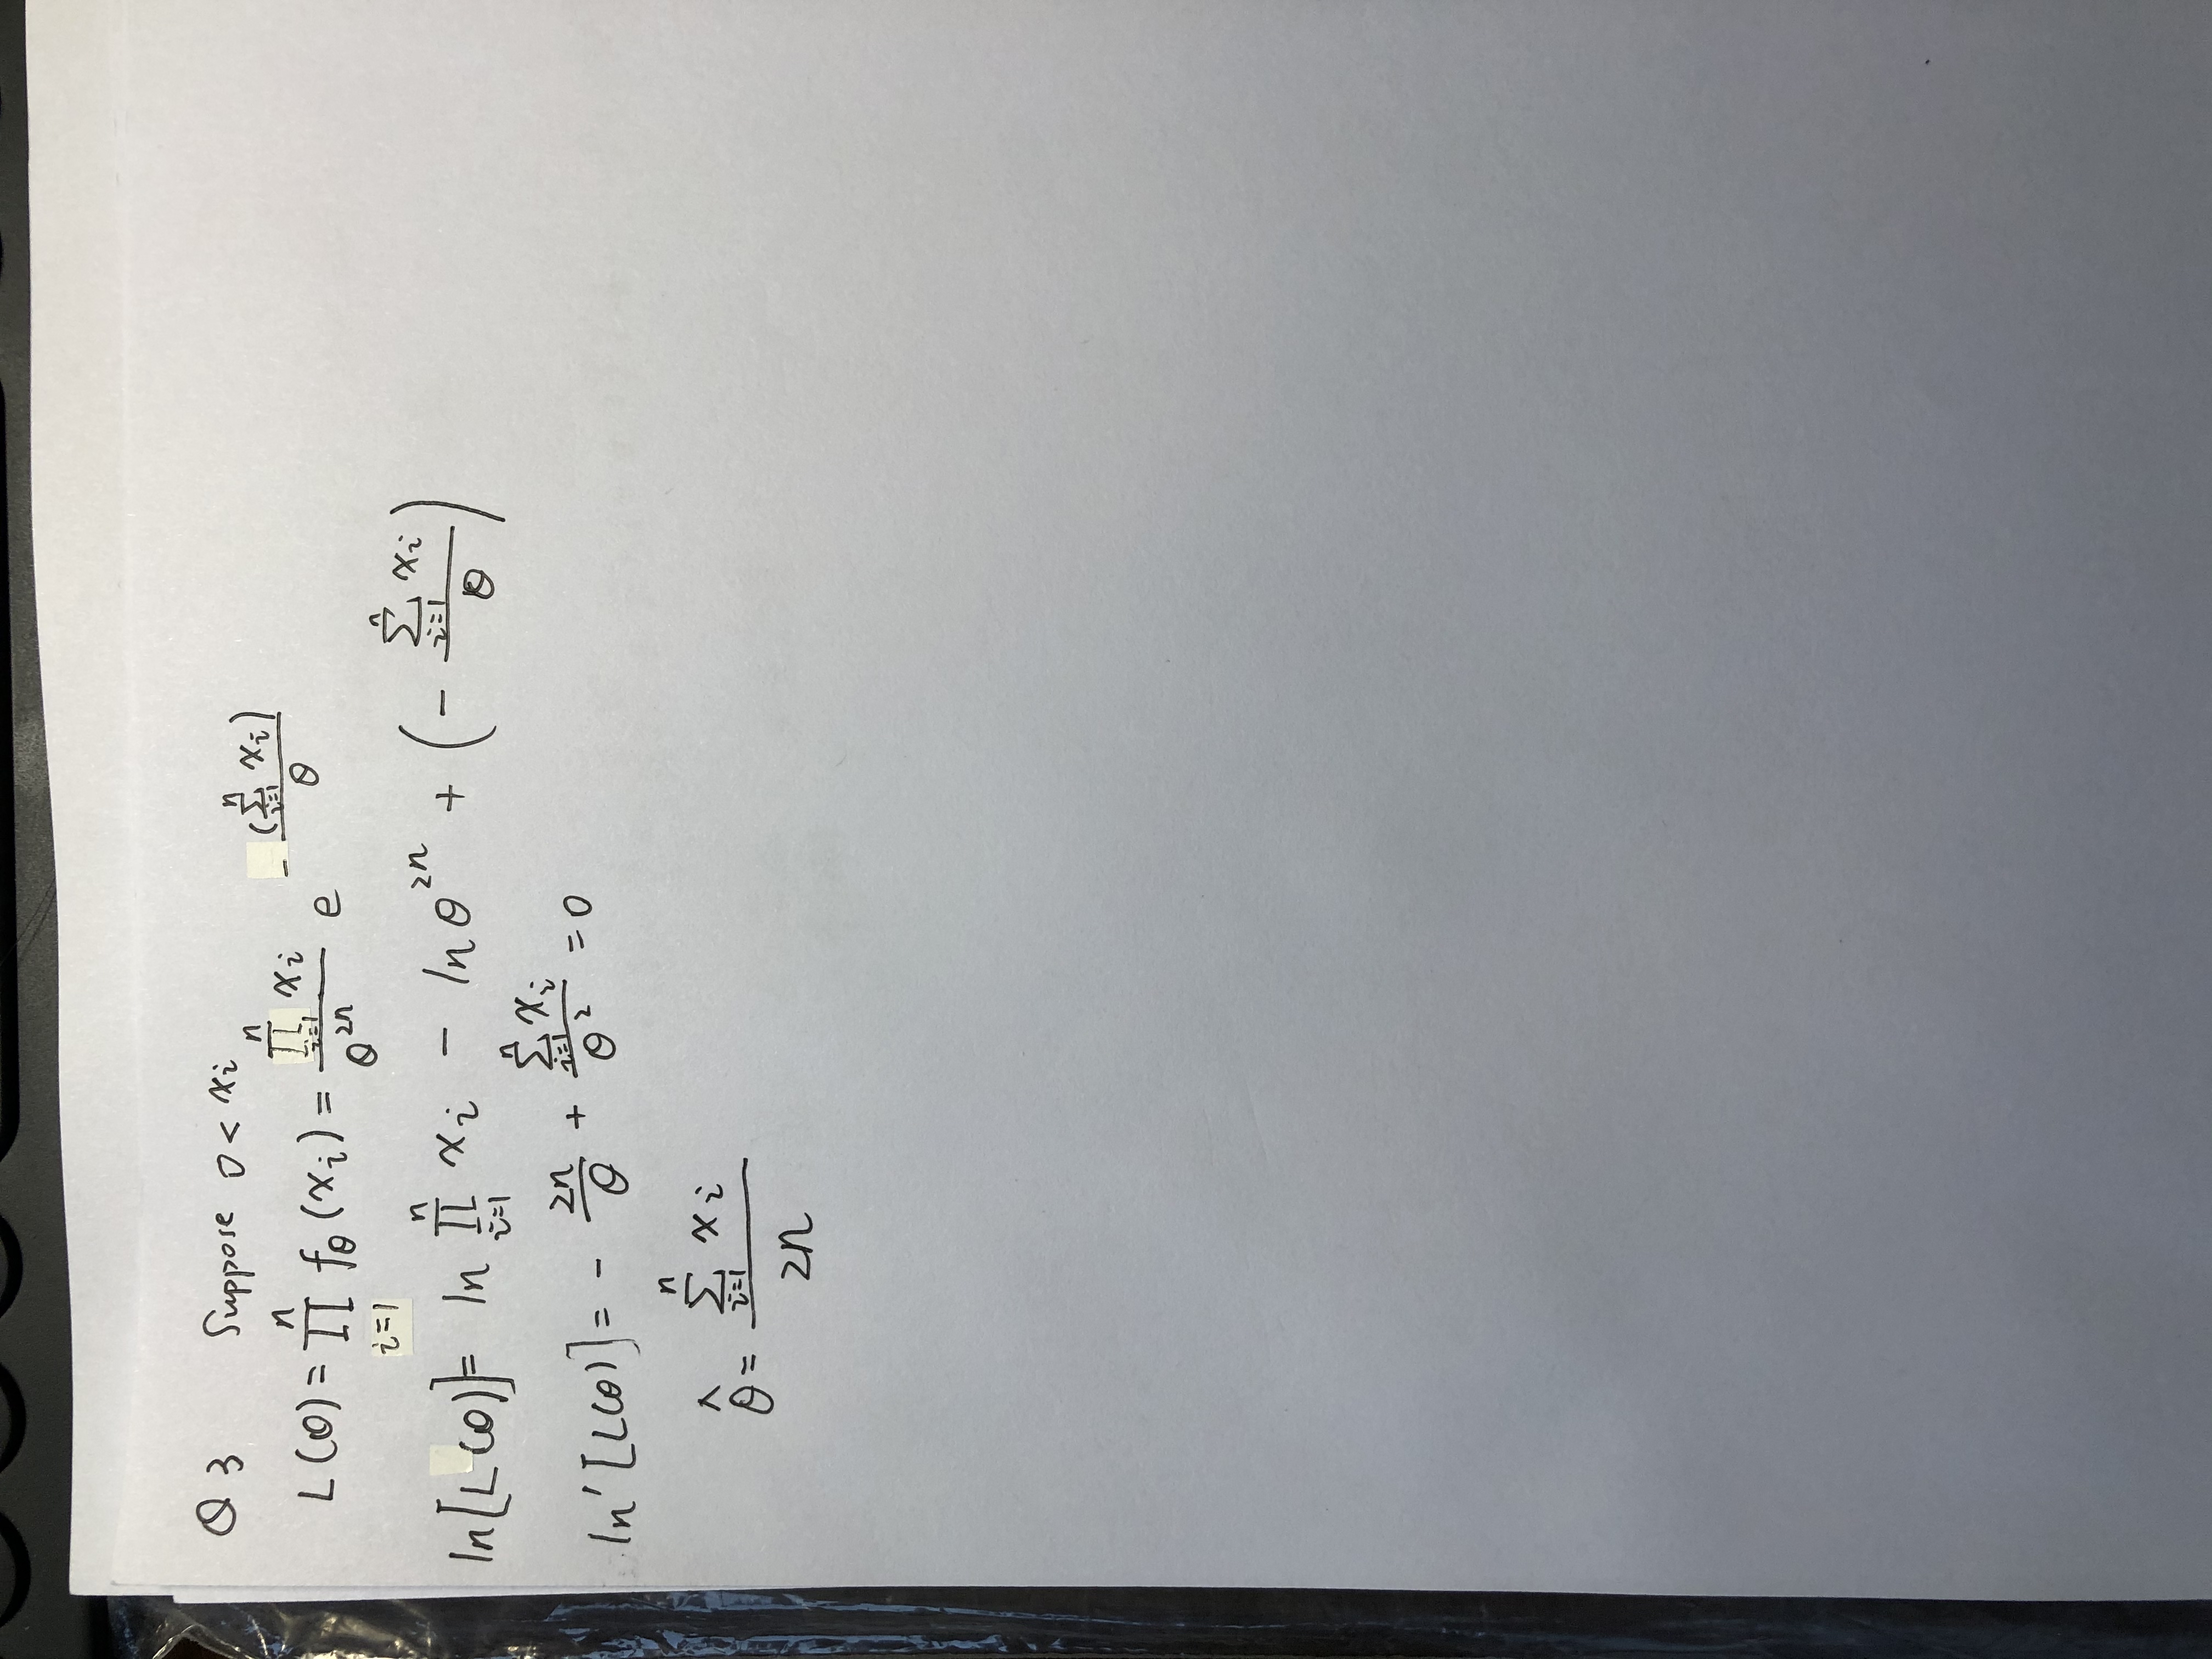 Q 3 Suppose 0 < xᵢ
L(θ) = ∏ⁿᵢ₌₁ f_θ(xᵢ) = (∏ⁿᵢ₌₁ xᵢ)/θ²ⁿ e^(-(∑ⁿᵢ₌₁ xᵢ)/θ)
ln[L(θ)] = ln ∏ⁿᵢ₌₁ xᵢ - ln θ²ⁿ + (- (∑ⁿᵢ₌₁ xᵢ)/θ)
ln'[L(θ)] = - 2n/θ + (∑ⁿᵢ₌₁ xᵢ)/θ² = 0
θ̂ = (∑ⁿᵢ₌₁ xᵢ)/2n